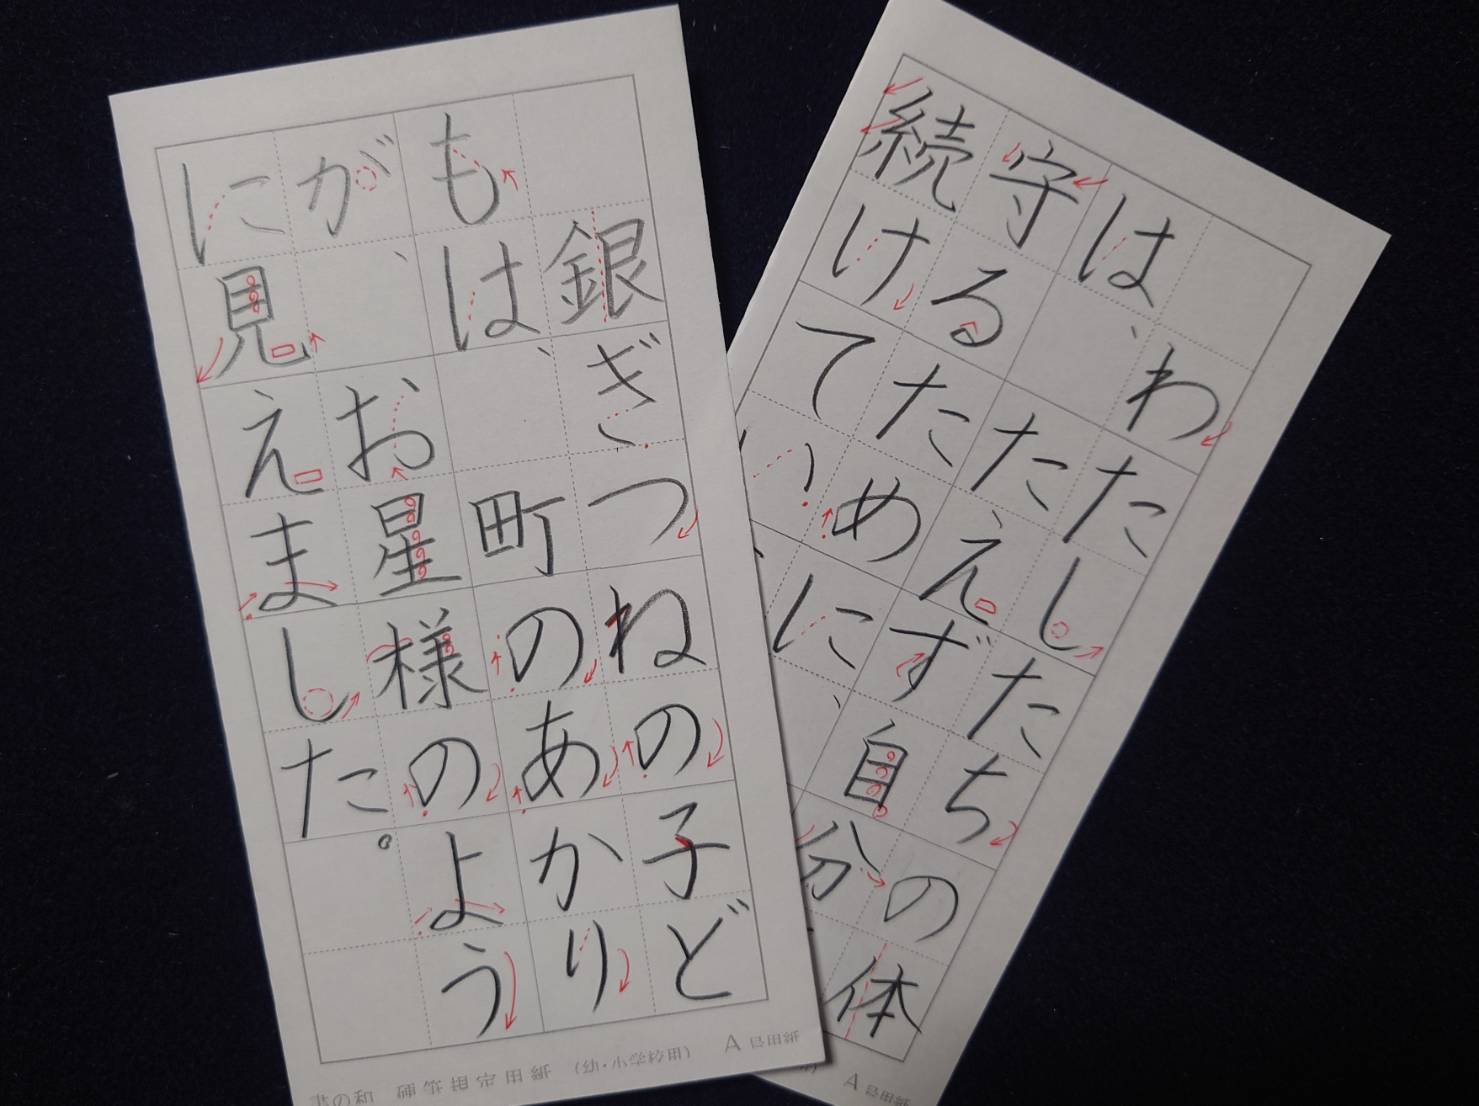 銀ぎつねの子ど
もは、町のあかり
が、お星様のよう
に見えました。
書の和 硬筆規定用紙 (幼・小学校用) A号用紙
わたしたちの体
は、たえず自分
守るために、
続けてい
A号用紙